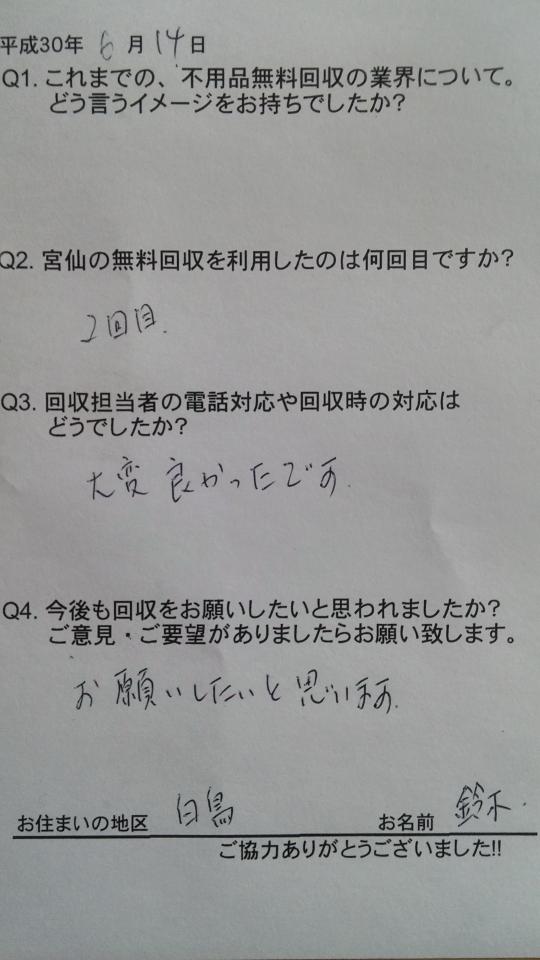 平成30年 6 月 14 日
Q1. これまでの、不用品無料回収の業界について。
どう言うイメージをお持ちでしたか?
Q2. 宮仙の無料回収を利用したのは何回目ですか?
2回目.
Q3. 回収担当者の電話対応や回収時の対応は
どうでしたか?
大変良かったです.
Q4. 今後も回収をお願いしたいと思われましたか?
ご意見・ご要望がありましたらお願い致します。
お願いしたいと思います.
お住まいの地区 白鳥 お名前 鈴木.
ご協力ありがとうございました!!